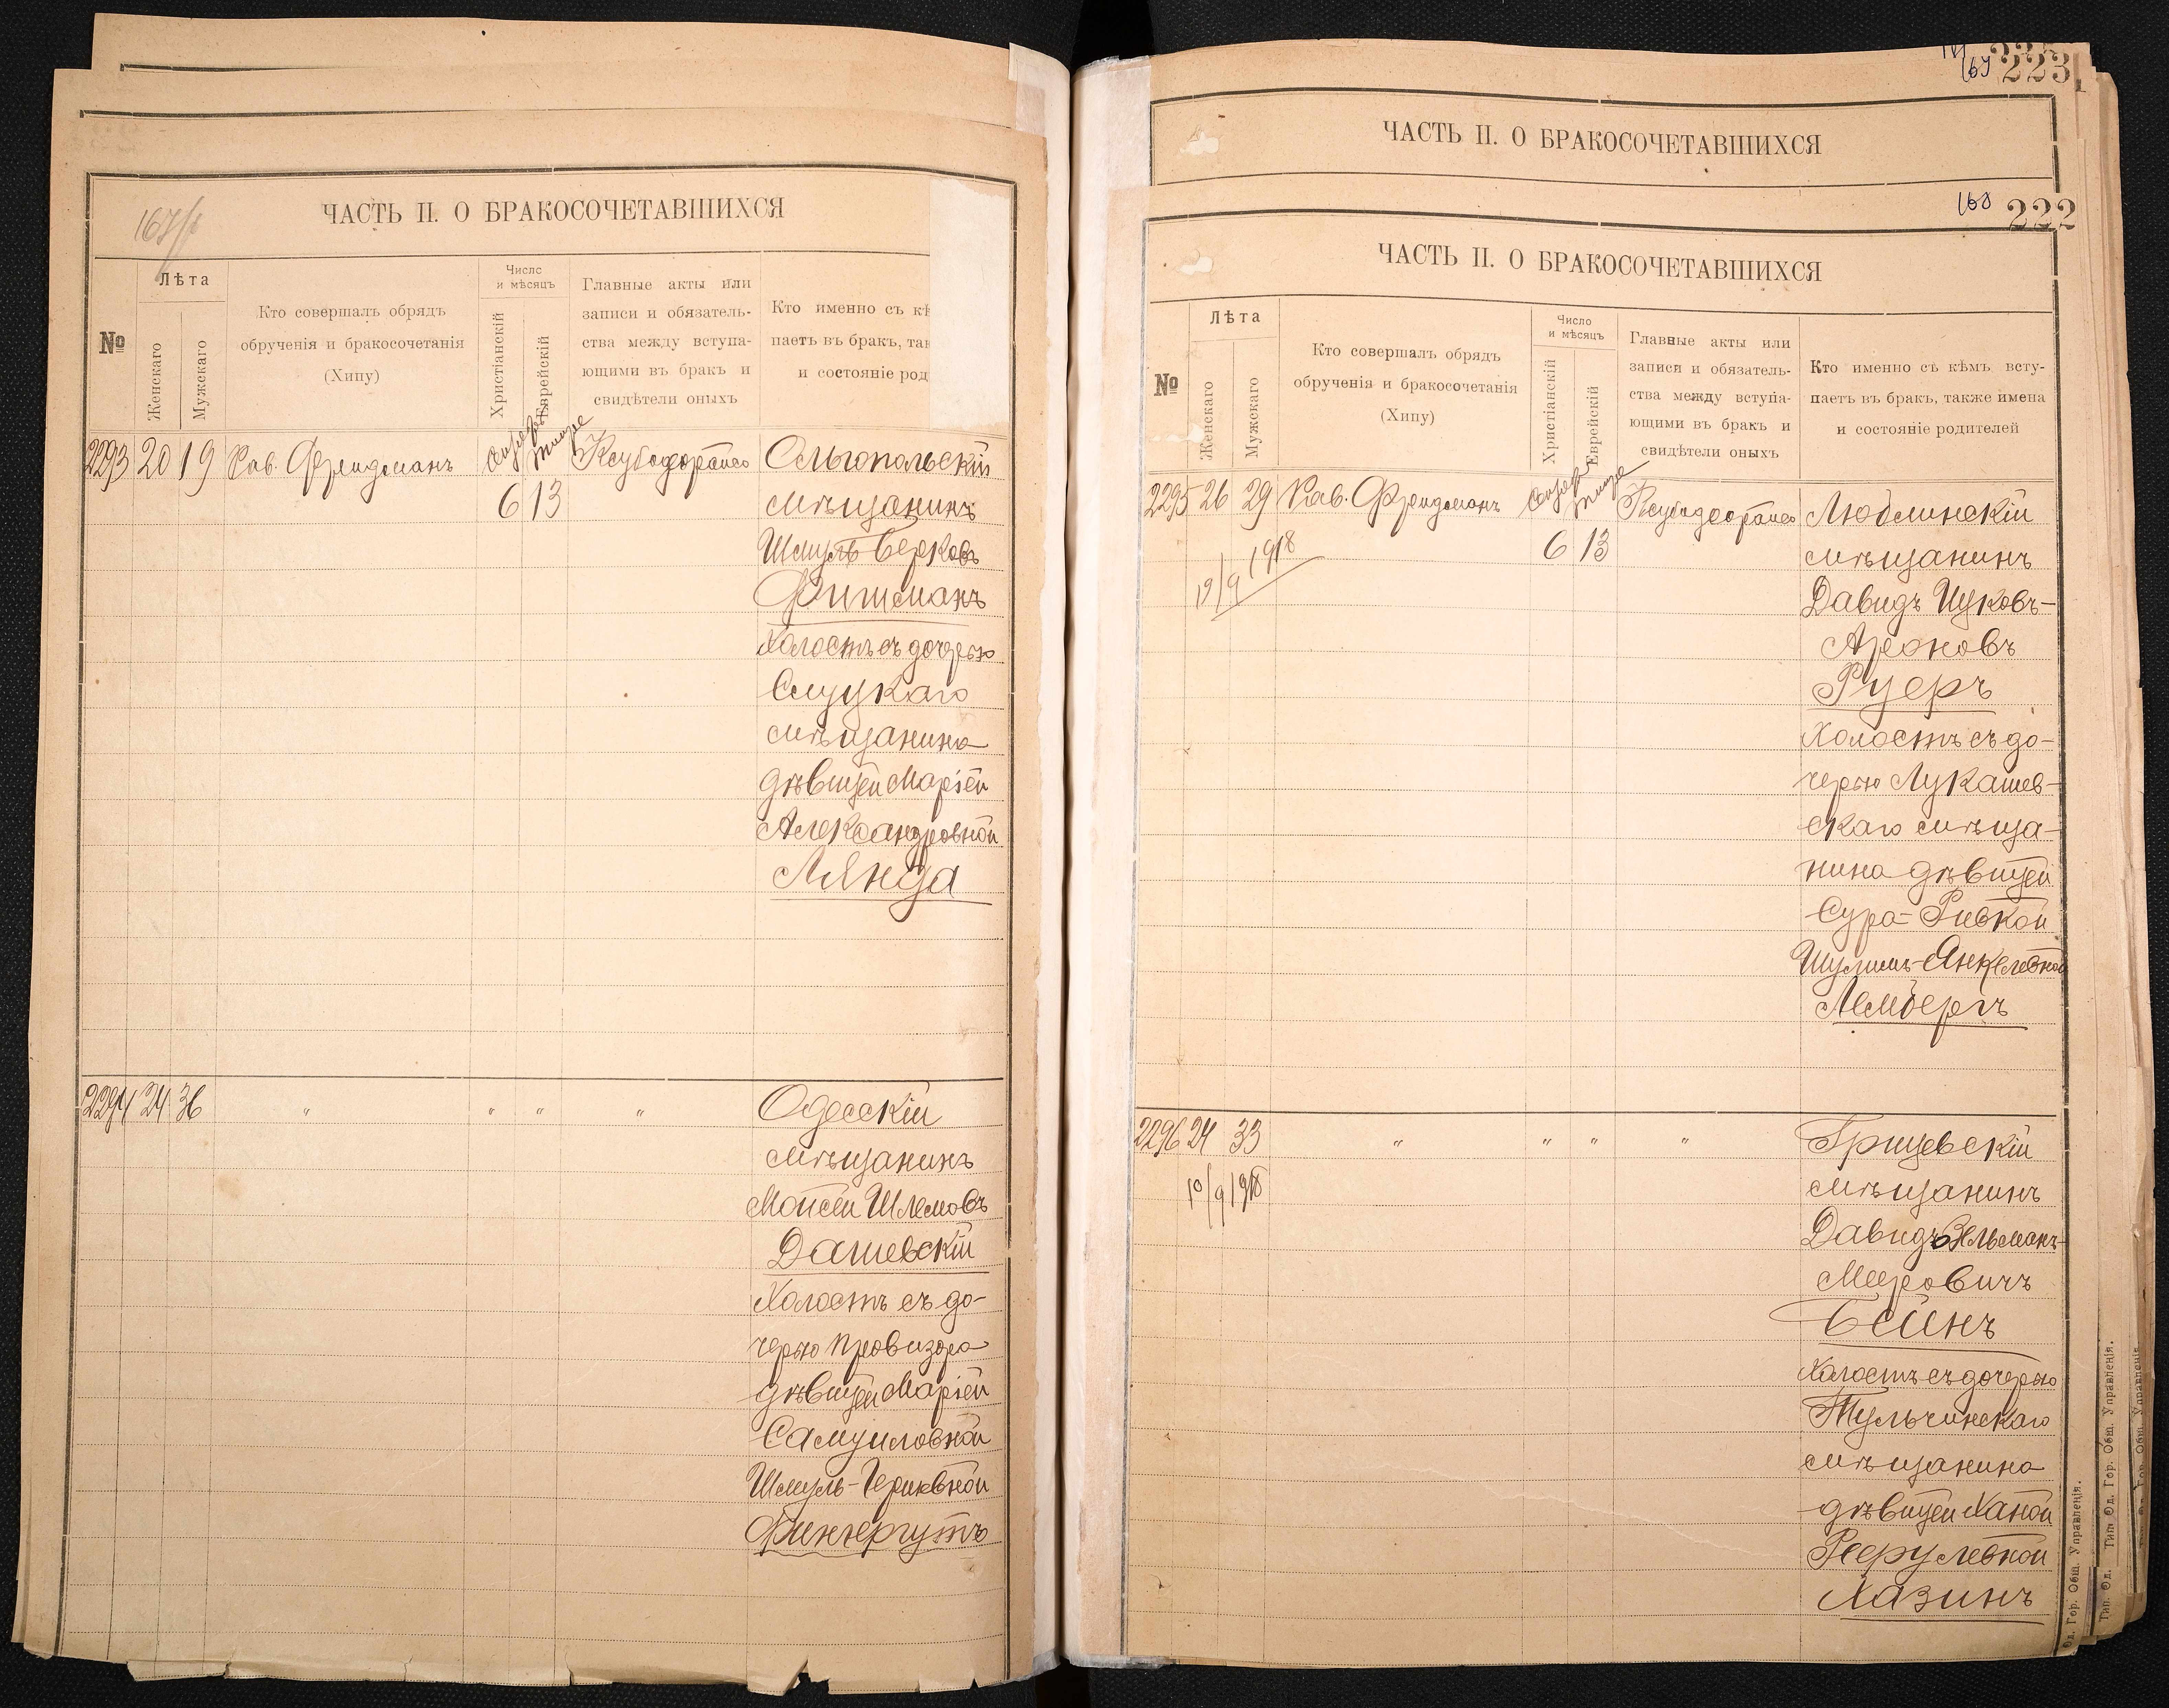 167/1
ЧАСТЬ II. О БРАКОСОЧЕТАВШИХСЯ
№
Лѣта
Женскаго
Мужскаго
Кто совершалъ обрядъ
обрученія и бракосочетанія
(Хипу)
Число
и мѣсяцъ
Христіанскій
Еврейскій
Главные акты или
записи и обязатель-
ства между вступа-
ющими въ бракъ и
свидѣтели оныхъ
Кто именно съ кѣ
паетъ въ бракъ, так
и состояніе род
2293 20 19 Рав. Фридманъ
6 13
Ольгопольскій
мѣщанинъ
Шмуль Берковъ
Фишманъ
Холостъ съ дочерью
Слуцкаго
мѣщанина
дѣвицей Маріей
Александровной
Лянда
2294 24 36 " " " "
Одесскій
мѣщанинъ
Моисей Шлемовъ
Дашевскій
Холостъ съ до-
черью провизора
дѣвицей Маріей
Самуиловной
Шмуль-
223
ЧАСТЬ II. О БРАКОСОЧЕТАВШИХСЯ
168 222
ЧАСТЬ II. О БРАКОСОЧЕТАВШИХСЯ
№
Лѣта
Женскаго
Мужскаго
Кто совершалъ обрядъ
обрученія и бракосочетанія
(Хипу)
Число
и мѣсяцъ
Христіанскій
Еврейскій
Главные акты или
записи и обязатель-
ства между вступа-
ющими въ бракъ и
свидѣтели оныхъ
Кто именно съ кѣмъ всту-
паетъ въ бракъ, также имена
и состояніе родителей
2295 26 29 Рав. Фридманъ
6 13
19/9 1918
Люблинскій
мѣщанинъ
Давидъ Ицковъ-
Ароновъ
Руеръ
Холостъ съ до-
черью Лукашев-
скаго мѣща-
нина дѣвицей
Сура-Ривкой
Шулимъ-Янкелевной
Лембергъ
2296 24 33 " " " "
10/9 1918
Грицевскій
мѣщанинъ
Давидъ Зельманъ-
Мееровичъ
Бейнъ
Холостъ съ дочерью
Тульчинскаго
мѣщанина
дѣвицей Ханой
Хазинъ
Од. Гор. Общ. Управленія.
Тип. Од. Гор. Общ. Управленія.